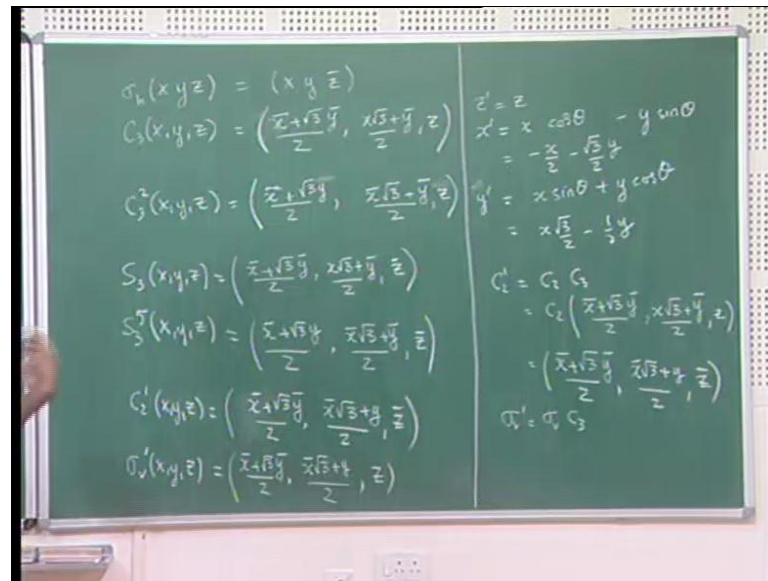 σₕ(x y z) = (x y z̄)
C₃(x,y,z) = ((x̄+√3ȳ)/2, (x√3+ȳ)/2, z)
C₃²(x,y,z) = ((x̄+√3y)/2, (x̄√3+ȳ)/2, z)
S₃(x,y,z) = ((x̄+√3ȳ)/2, (x√3+ȳ)/2, z̄)
S₃⁵(x,y,z) = ((x̄+√3y)/2, (x̄√3+ȳ)/2, z̄)
C₂'(x,y,z) = ((x̄+√3ȳ)/2, (x̄√3+y)/2, z̄)
σᵥ'(x,y,z) = ((x̄+√3ȳ)/2, (x̄√3+y)/2, z)
z' = z
x' = x cosθ - y sinθ
= -x/2 - √3/2 y
y' = x sinθ + y cosθ
= x √3/2 - 1/2 y
C₂' = C₂ C₃
= C₂((x̄+√3ȳ)/2, (x√3+ȳ)/2, z)
= ((x̄+√3ȳ)/2, (x̄√3+y)/2, z̄)
σᵥ' = σᵥ C₃